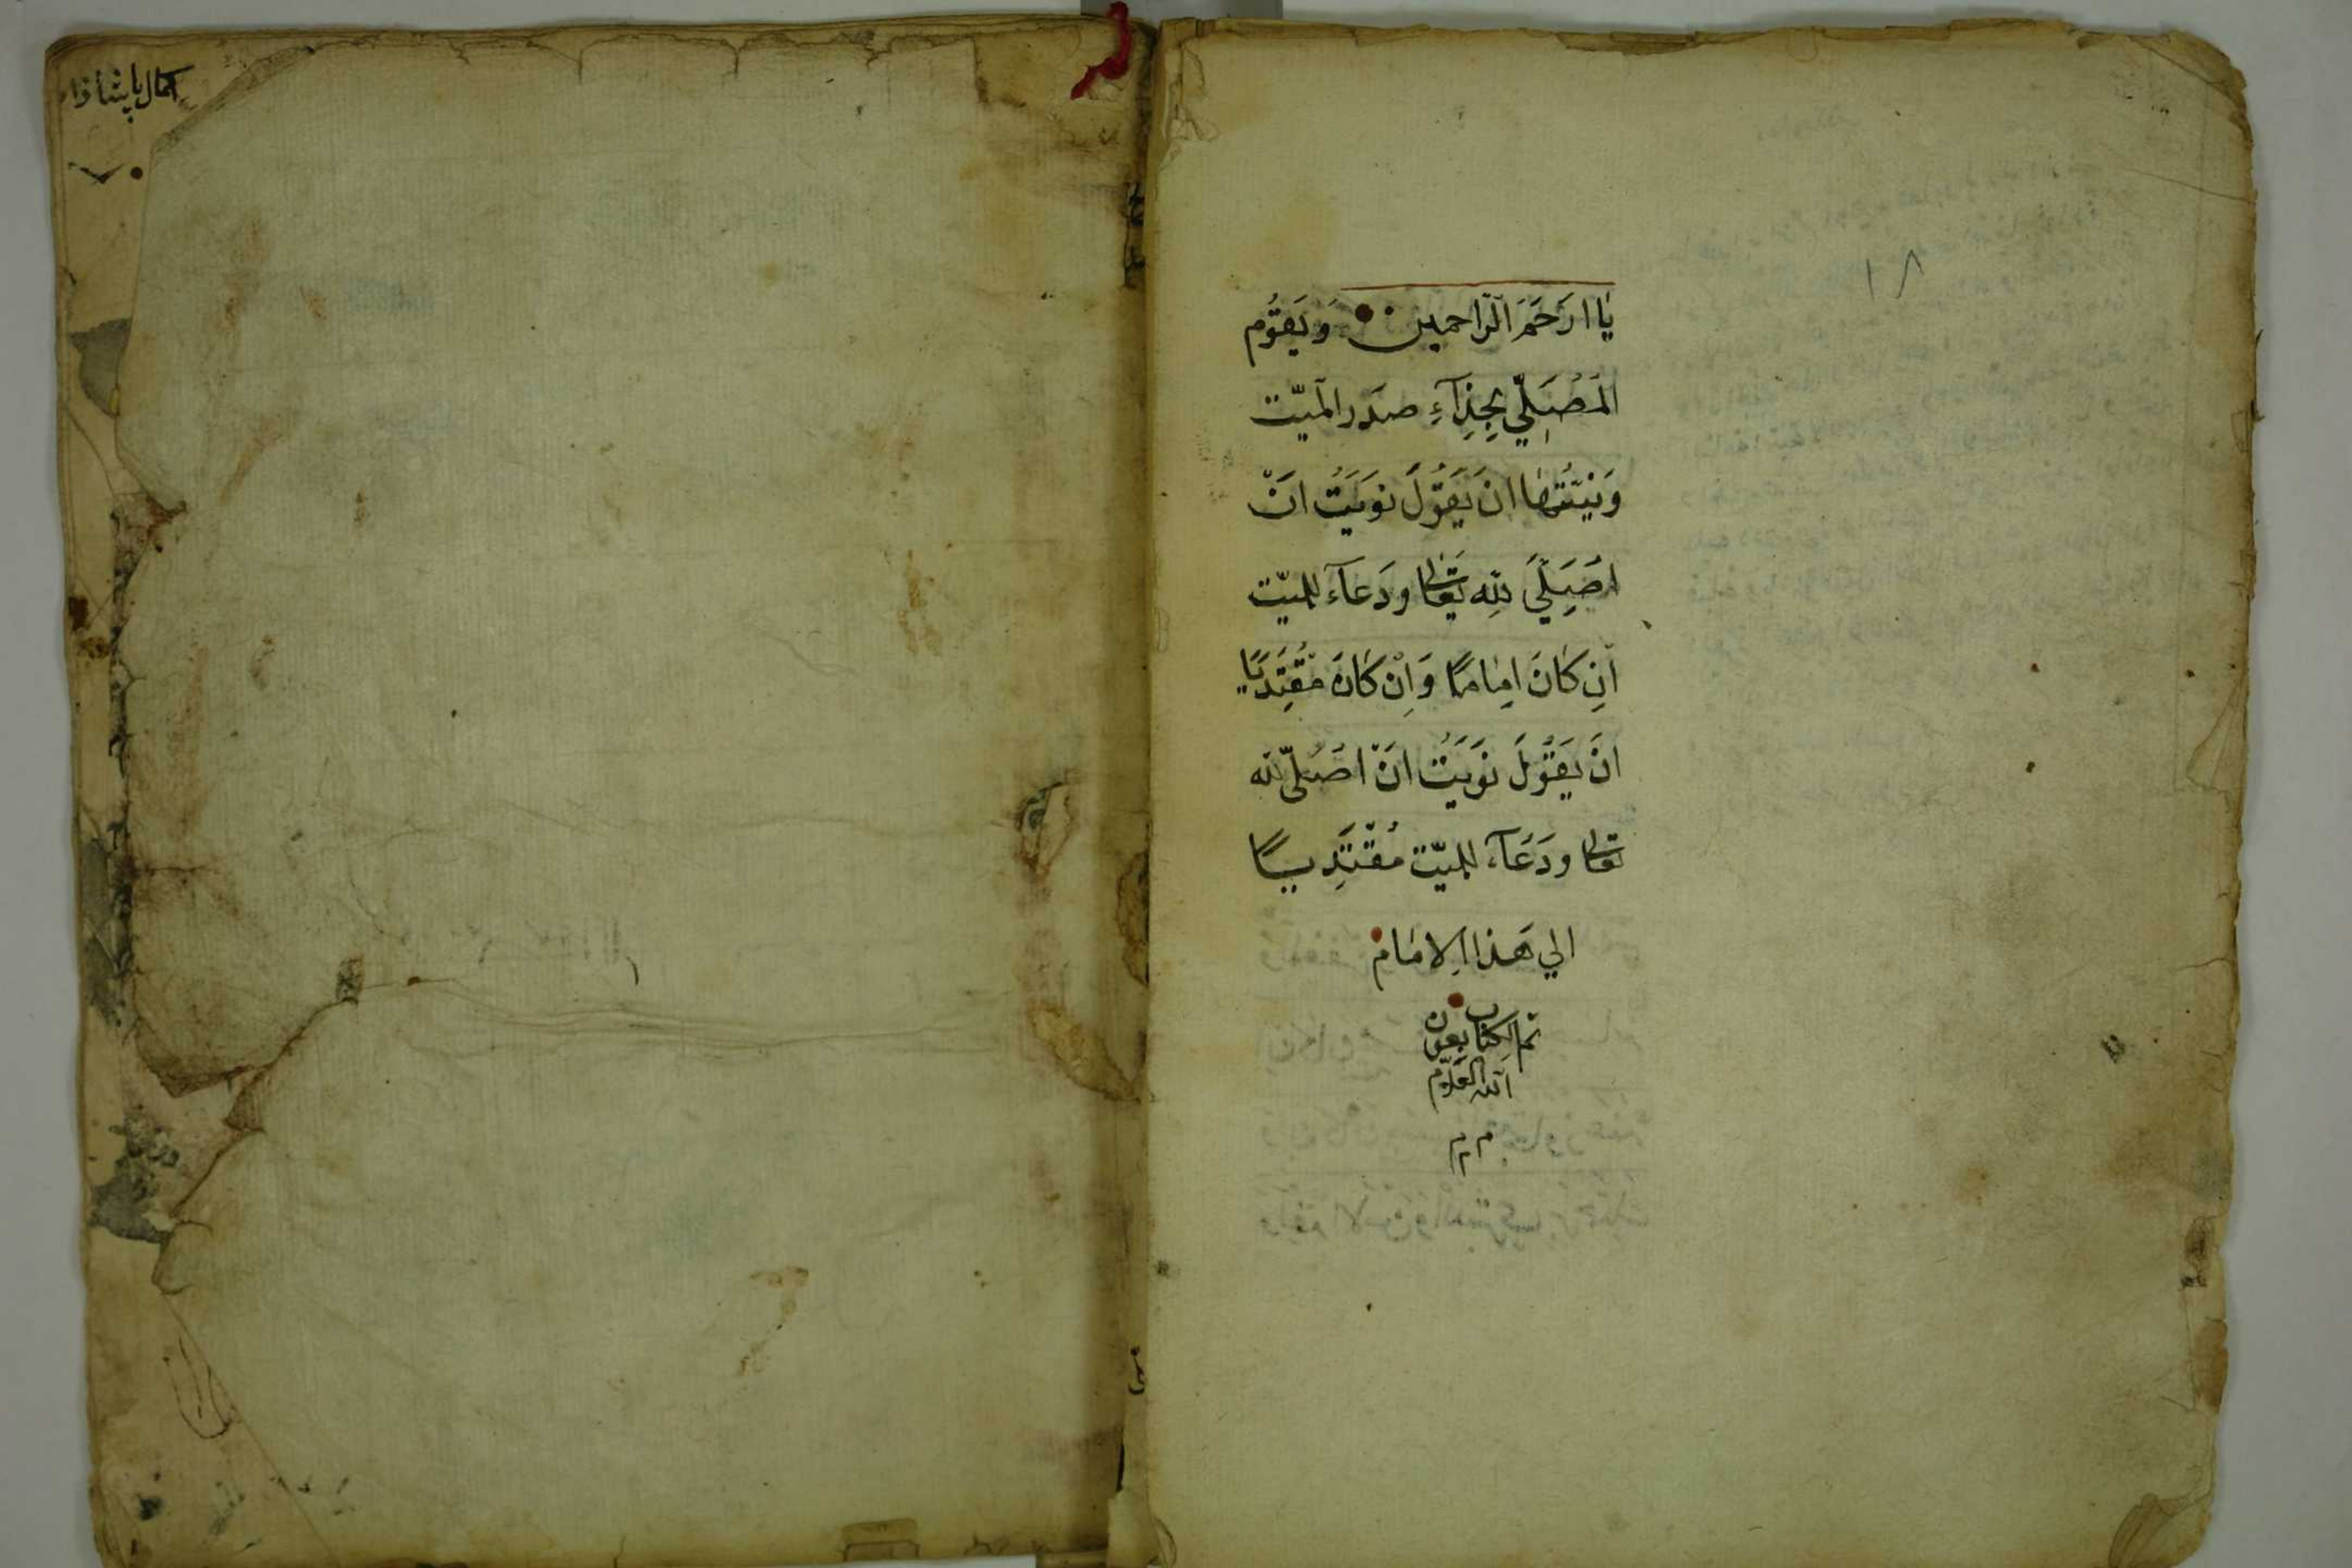 ١٨
يَا ارَحَمَ الرّاحمين وَيَقوُم
المصَلّي بِحِذآءِ صدَر الميّت
وَنيّتُهَا انَ يَقوُلَ نوَيَتُ انَْ
اصَُلّيَ لِلّه تَعَالى ودَعآء للميّت
اِن كَانَ امِامًا وَاِنْ كَانَ مُقْتَدِيًا
انَ يَقوُلَ نوَيَتُ انَْ اصَُلّي لله
تعالى ودَعَآء للميّت مُقْتَدِيًا
الي هَذا الامَام
تم الكتاب بعون
الله العلّام
م م م
كمال پاشا زاد